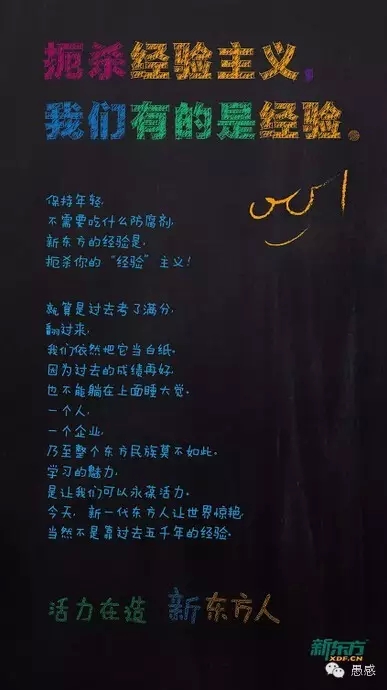 扼杀经验主义，
我们有的是经验。
保持年轻，
不需要吃什么防腐剂，
新东方的经验是，
扼杀你的“经验”主义！
就算是过去考了满分，
翻过来，
我们依然把它当白纸，
因为过去的成绩再好，
也不能躺在上面睡大觉。
一个人，
一个企业，
乃至整个东方民族莫不如此，
学习的魅力，
是让我们可以永葆活力。
今天，新一代东方人让世界惊艳，
当然不是靠过去五千年的经验。
活力在造 新东方人
新东方
XDF.CN
愚感